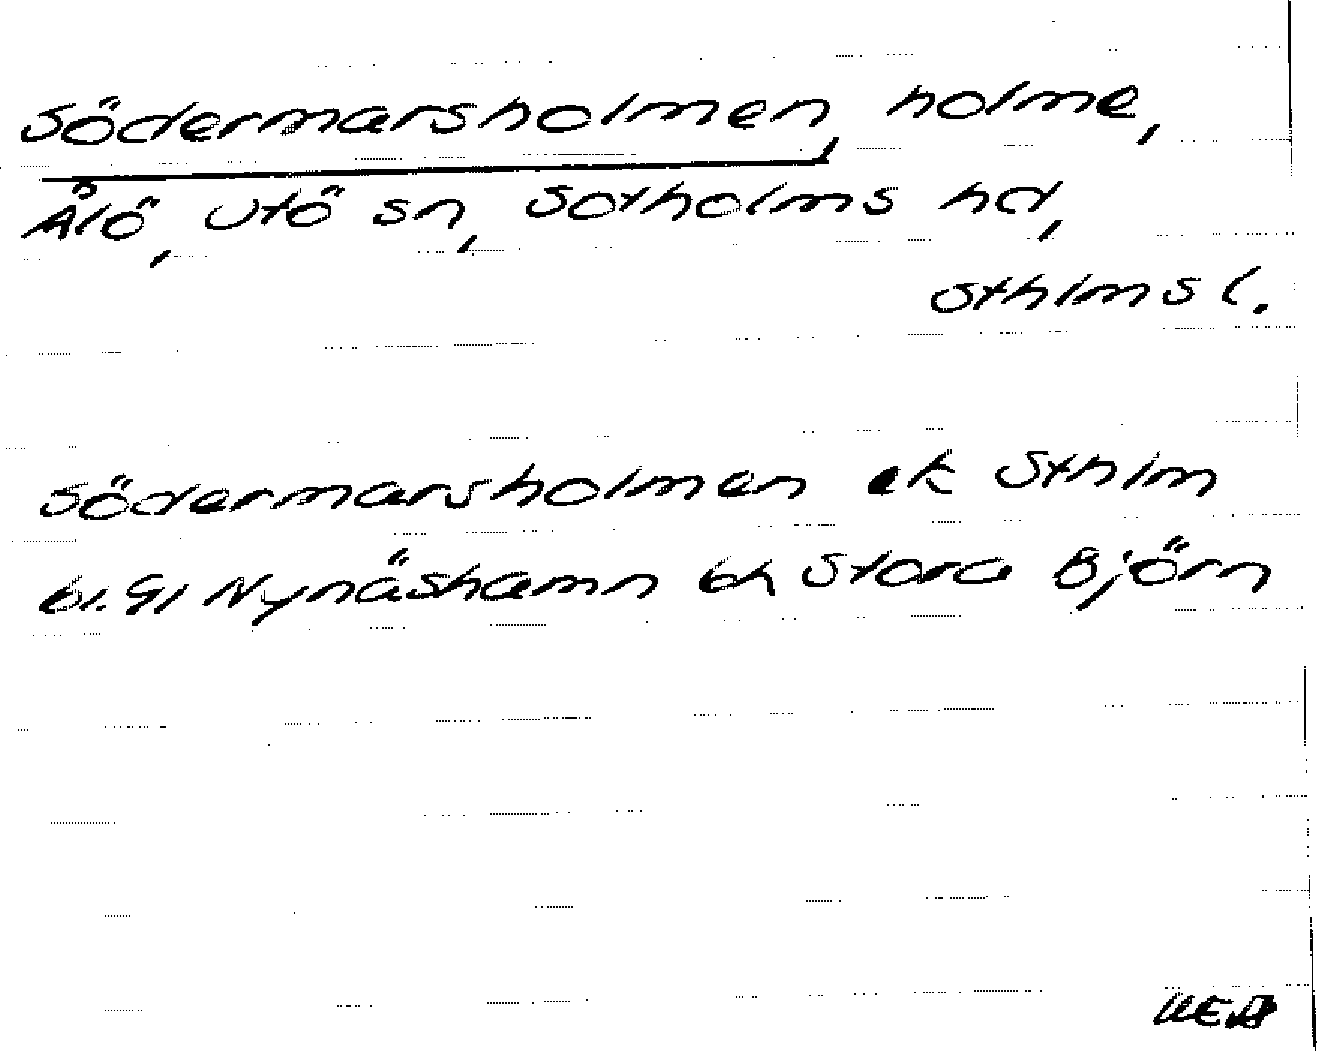 Södermarsholmen, holme,
Ålö, Utö sn, Sotholms hd,
Sthlms l.
Södermarsholmen ek Sthlm
bl. 91 Nynäshamn bh Stora Björn